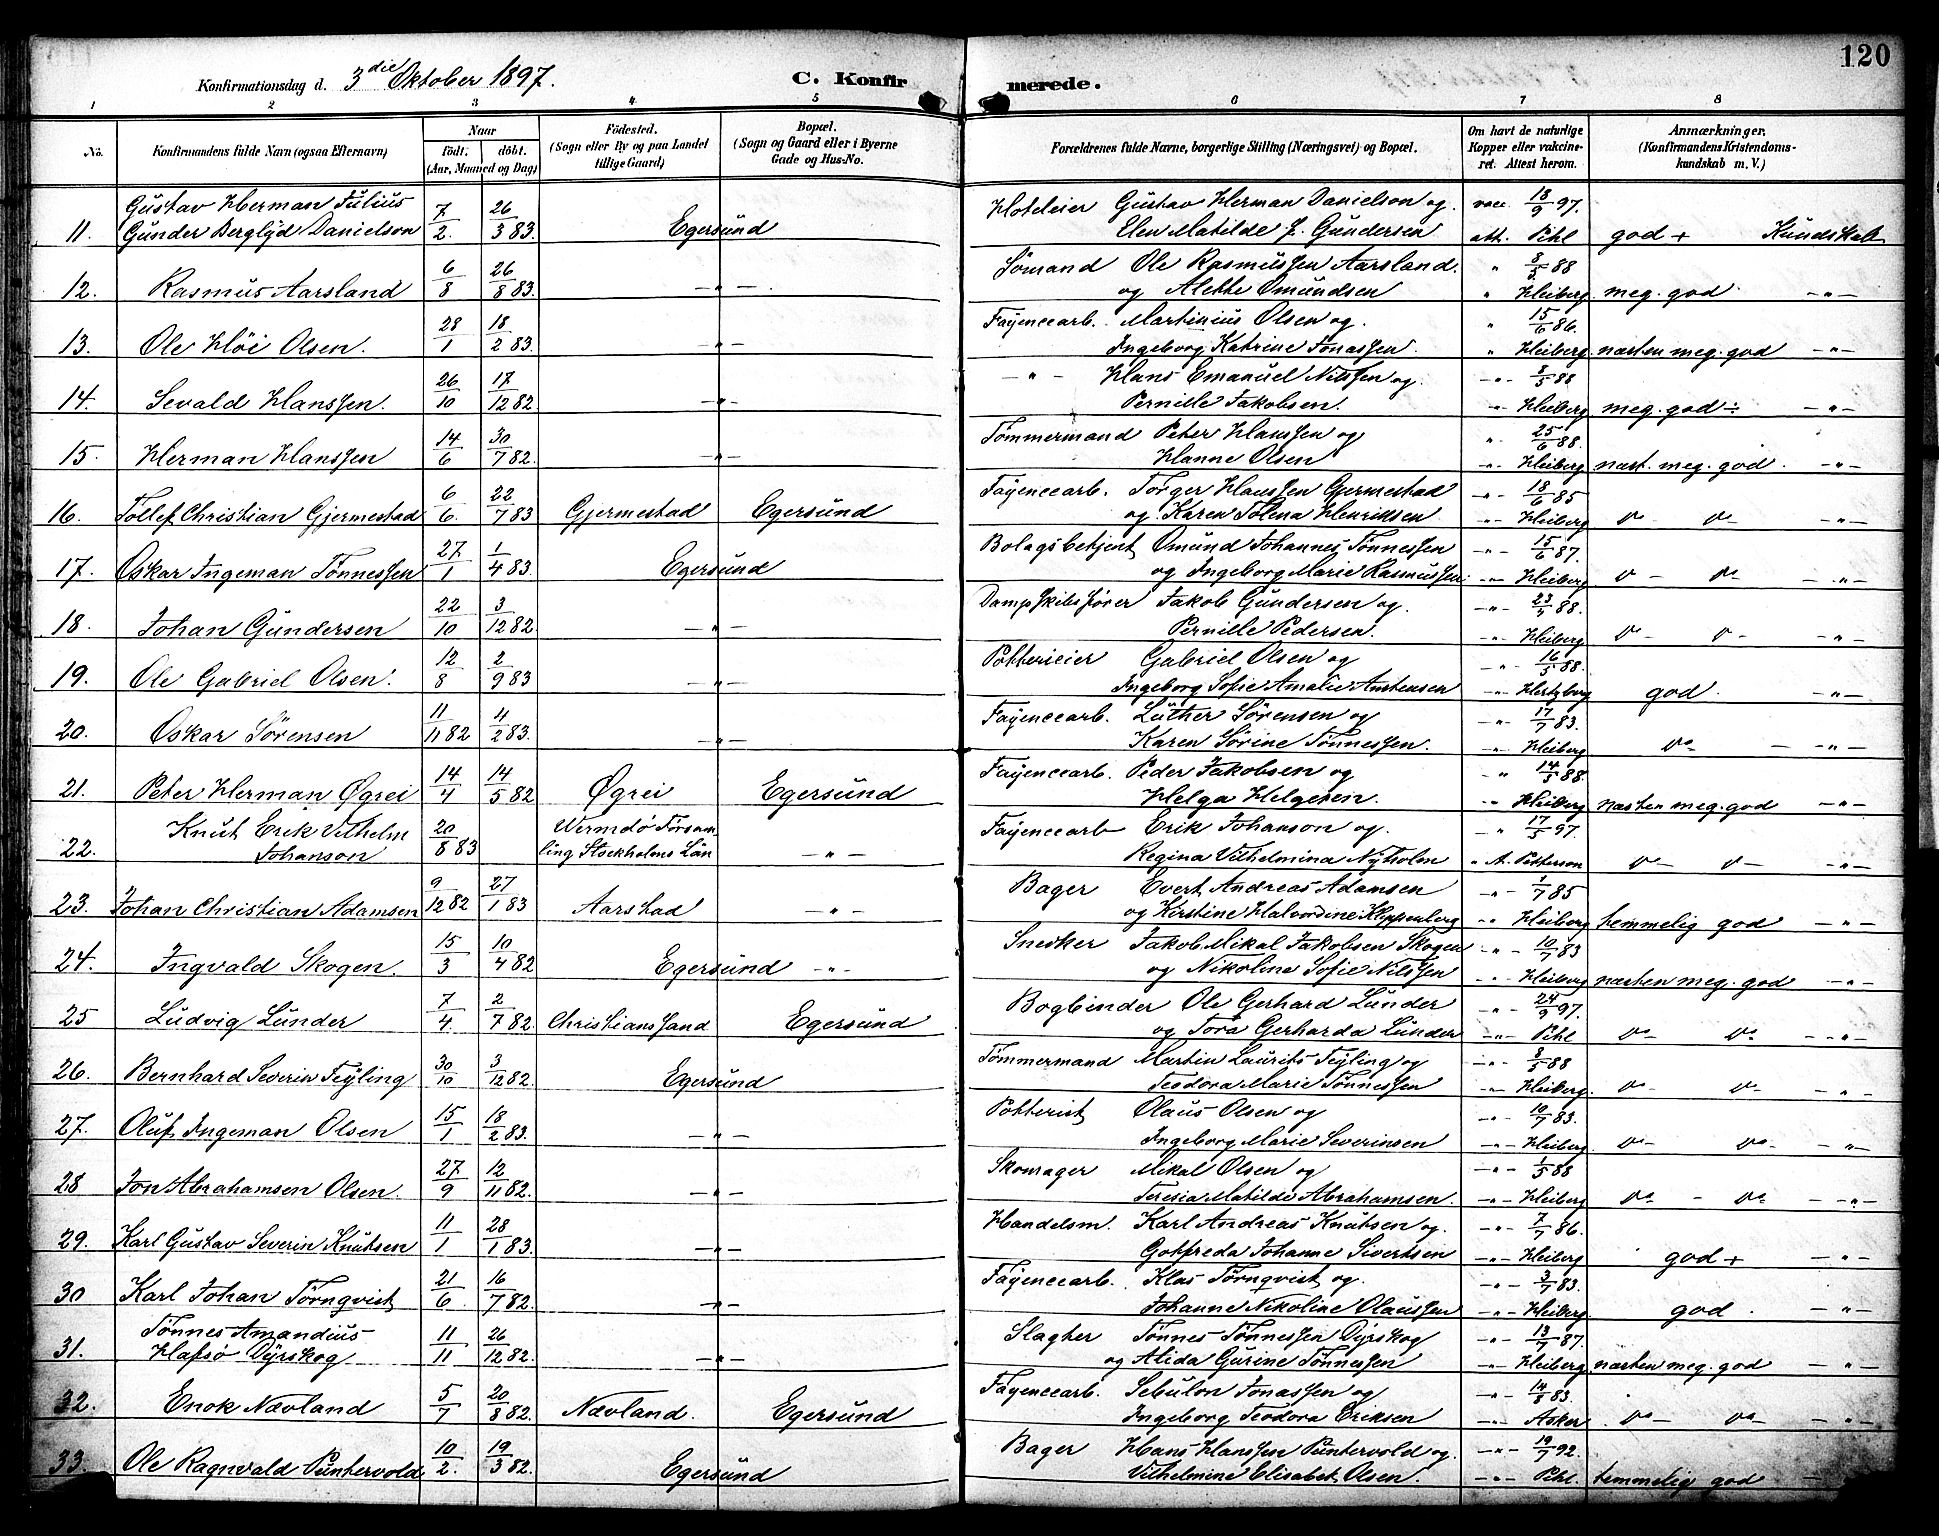 120
Konfirmationsdag d. 3die Oktober 1897. C. Konfirmerede.
1 2 3 4 5 6 7 8
No. Konfirmandens fulde Navn (ogsaa Efternavn) Naar födt. döbt. (Aar, Maaned og Dag) Födested. (Sogn eller By og paa Landet tillige Gaard) Bopæl. (Sogn og Gaard eller i Byerne Gade og Hus-No. Forældrenes fulde Navne, borgerlige Stilling (Næringsvei) og Bopæl. Om havt de naturlige Kopper eller vakcineret. Attest herom. Anmærkninger. (Konfirmandens Kristendomskundskab m. V.)
Gustav Herman Julius 7/2. 26/3 83. Hoteleier Gustav Herman Danielson og vacc. 18/9 97.
11. Gunder Berglyd Danielson Egersund Elen Matilde f. Gundersen att. Pihl god + Kundskab
12. Rasmus Aarsland 6/8 26/8 83. -"- Sømand Ole Rasmussen Aarsland " 8/5 88
og Alette Omundsen " Heiberg meg. god -"-
13. Ole Höi Olsen. 28/1 18/2 83. -"- Fayencearb. Martinius Olsen og " 15/6 86.
Ingeborg Katrine Jonassen. " Heiberg næsten meg. god -"-
14. Sevald Hanssen. 26/10 17/12 82. -"- -"- Hans Emanuel Nilssen og -"- 8/5 88
Pernille Jakobsen. -"- Heiberg meg. god ÷ -"-
15. Herman Hanssen 14/6 30/7 82. -"- Tømmermand Peter Hanssen og -"- 25/6 88.
Hanne Olsen -"- Heiberg næst. meg. god. -"-
16. Tollef Christian Gjermestad 6/6. 22/7 83 Gjermestad Egersund Fayencearb. Torger Hanssen Gjermestad -"- 18/6 85
og Karen Tolena Henriksen -"- Heiberg do do -"-
17. Oskar Ingeman Tönnessen 27/1 1/4 83. Egersund Bolagsbetjent Omund Johannes Tönnessen -"- 15/6 87.
og Ingeborg Marie Rasmussen -"- Heiberg do do -"-
18. Johan Gundersen 22/10 3/12 82. -"- Dampskibsfører Jakob Gundersen og -"- 88.
Pernille Pedersen. -"- Heiberg do do -"-
19. Ole Gabriel Olsen. 12/8 2/9 83 -"- Potterieier Gabriel Olsen og -"- 16/5 88.
Ingeborg Sofie Amalie -"- Hertzberg god. -"-
20. Oskar Sörensen 11/11 82 4/2 83. -"- Fayencearb. Luther Sörensen og -"- 17/7 83.
Karen Sörine Tönnessen. -"- Heiberg do -"-
21. Peter Herman Øgrei 14/4 14/5 82 Øgrei Egersund Fayencearb. Peder Jakobsen og " 14/5 88.
Helga Helgesen. -"- Heiberg næsten meg. god -"-
Knut Erik Vilhelm 20/8 83 Wermdö Försam- Fayencearb Erik Johanson og " 17/5 97.
22. Johanson ling Stockholms Län -"- Regina Vilhelmina Nyholm " A. Petterson do do -"-
23. Johan Christian Adamsen 9/12 82 27/1 83 Aarstad -"- Bager Evert Andreas Adamsen -"- 1/7 85
og Kirstine Halvordine Kleppenberg -"- Heiberg temmelig god -"-
24. Ingvald Skogen. 15/3 10/4 82 Egersund -"- Snedker Jakob Mikal Jakobsen Skogen -"- 10/7 83
og Nikoline Sofie Nilssen -"- Heiberg næsten meg. god -"-
25 Ludvig Lunder 7/4. 2/7 82. Christianssand Egersund Bogbinder Ole Gerhard Lunder -"- 24/9 97.
og Tora Gerharda Lunder -"- Pihl do do -"-
26. Bernhard Severin Feyling 30/10 3/12 82. Egersund Tømmermand Martin Laurits Feyling og -"- 8/5 88
Teodora Marie Tönnessen -"- Heiberg. do do -"-
27. Oluf Ingeman Olsen 15/1 18/2 83. -"- Potterist Olaus Olsen og -"- 10/7 83.
Ingeborg Marie Severinsen -"- Heiberg do do -"-
28 Jon Abrahamsen Olsen. 27/9 12/11 82. -"- Skomager Mikal Olsen og -"- 1/5 88
Teresia Matilde Abrahamsen. -"- Heiberg do do -"-
29. Karl Gustav Severin Knutsen 11/1 28/1 83. -"- Handelsm. Karl Andreas Knutsen og -"- 7/7 86.
Gotfreda Johanne Sivertsen -"- Heiberg god + -"-
30 Karl Johan Törnqvist 21/6. 16/7 82. -"- Fayencearb. Klas Törnqvist og -"- 3/7 83.
Johanne Nikoline Olaussen -"- Heiberg god. -"-
Tönnes Amandius 11/11 26/12 82. Slagter Tönnes Tönnessen Dyrskog -"- 13/7 87.
31. Hafsö Dyrskog -"- og Alida Gurine Tönnessen -"- Heiberg næsten meg. god -"-
32. Enok Nævland 5/7 20/8 82. Nævland. Egersund Fayencearb. Sebulon Jonassen og -"- 14/8 83.
Ingeborg Teodora Eriksen -"- Asker do do -"-
33. Ole Ragnvald Puntervold 10/2. 19/3 82. Egersund Bager Hans Hanssen Puntervold og -"- 19/7 92.
Vilhelmine Elisabet Olsen. -"- Pihl. temmelig god -